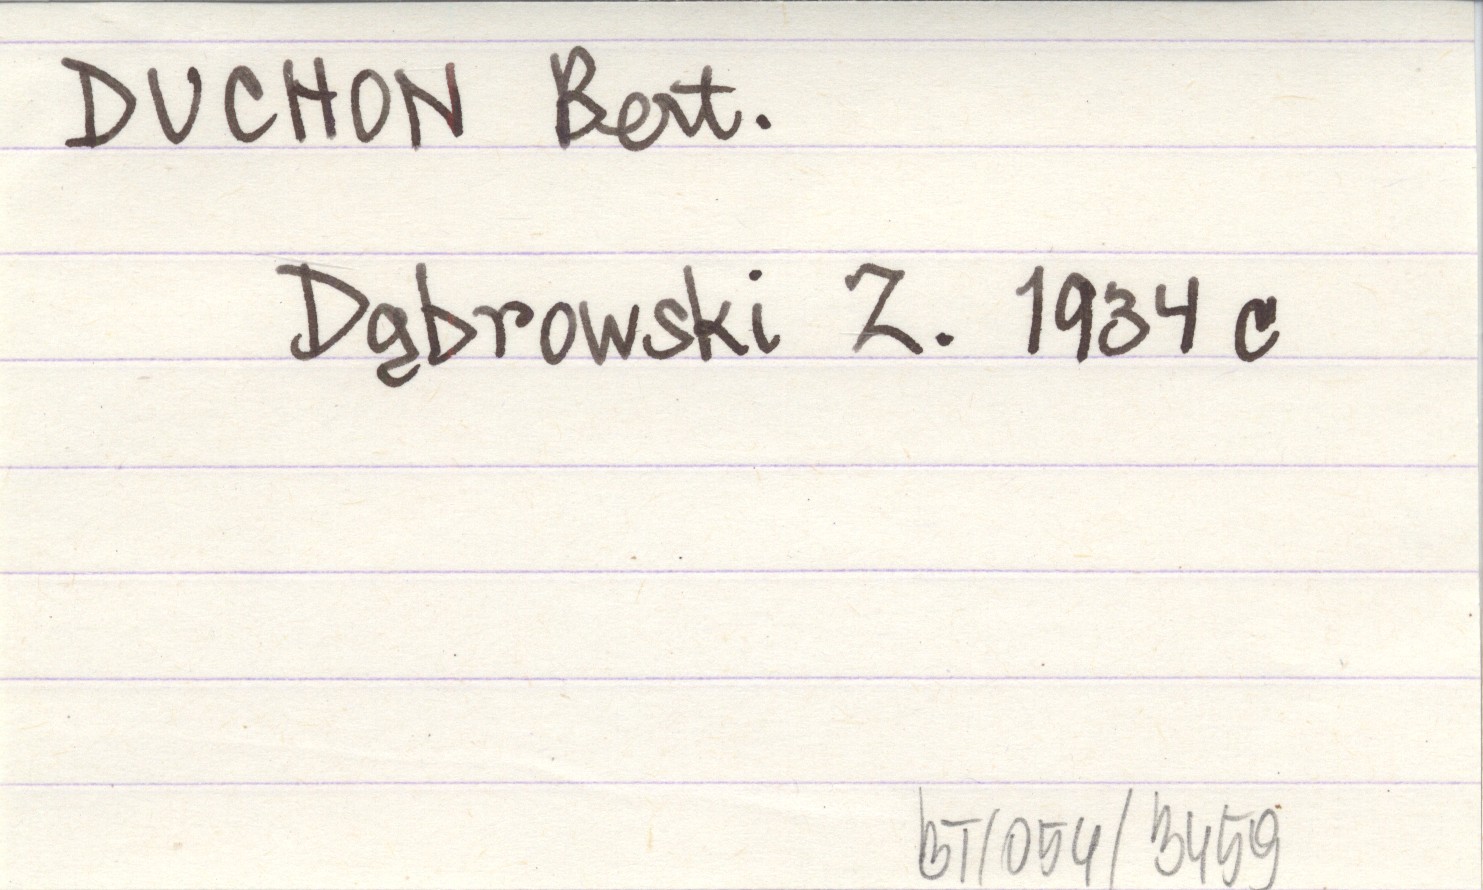 DUCHON Bert.
Dąbrowski Z. 1934 c
BT/054/3459